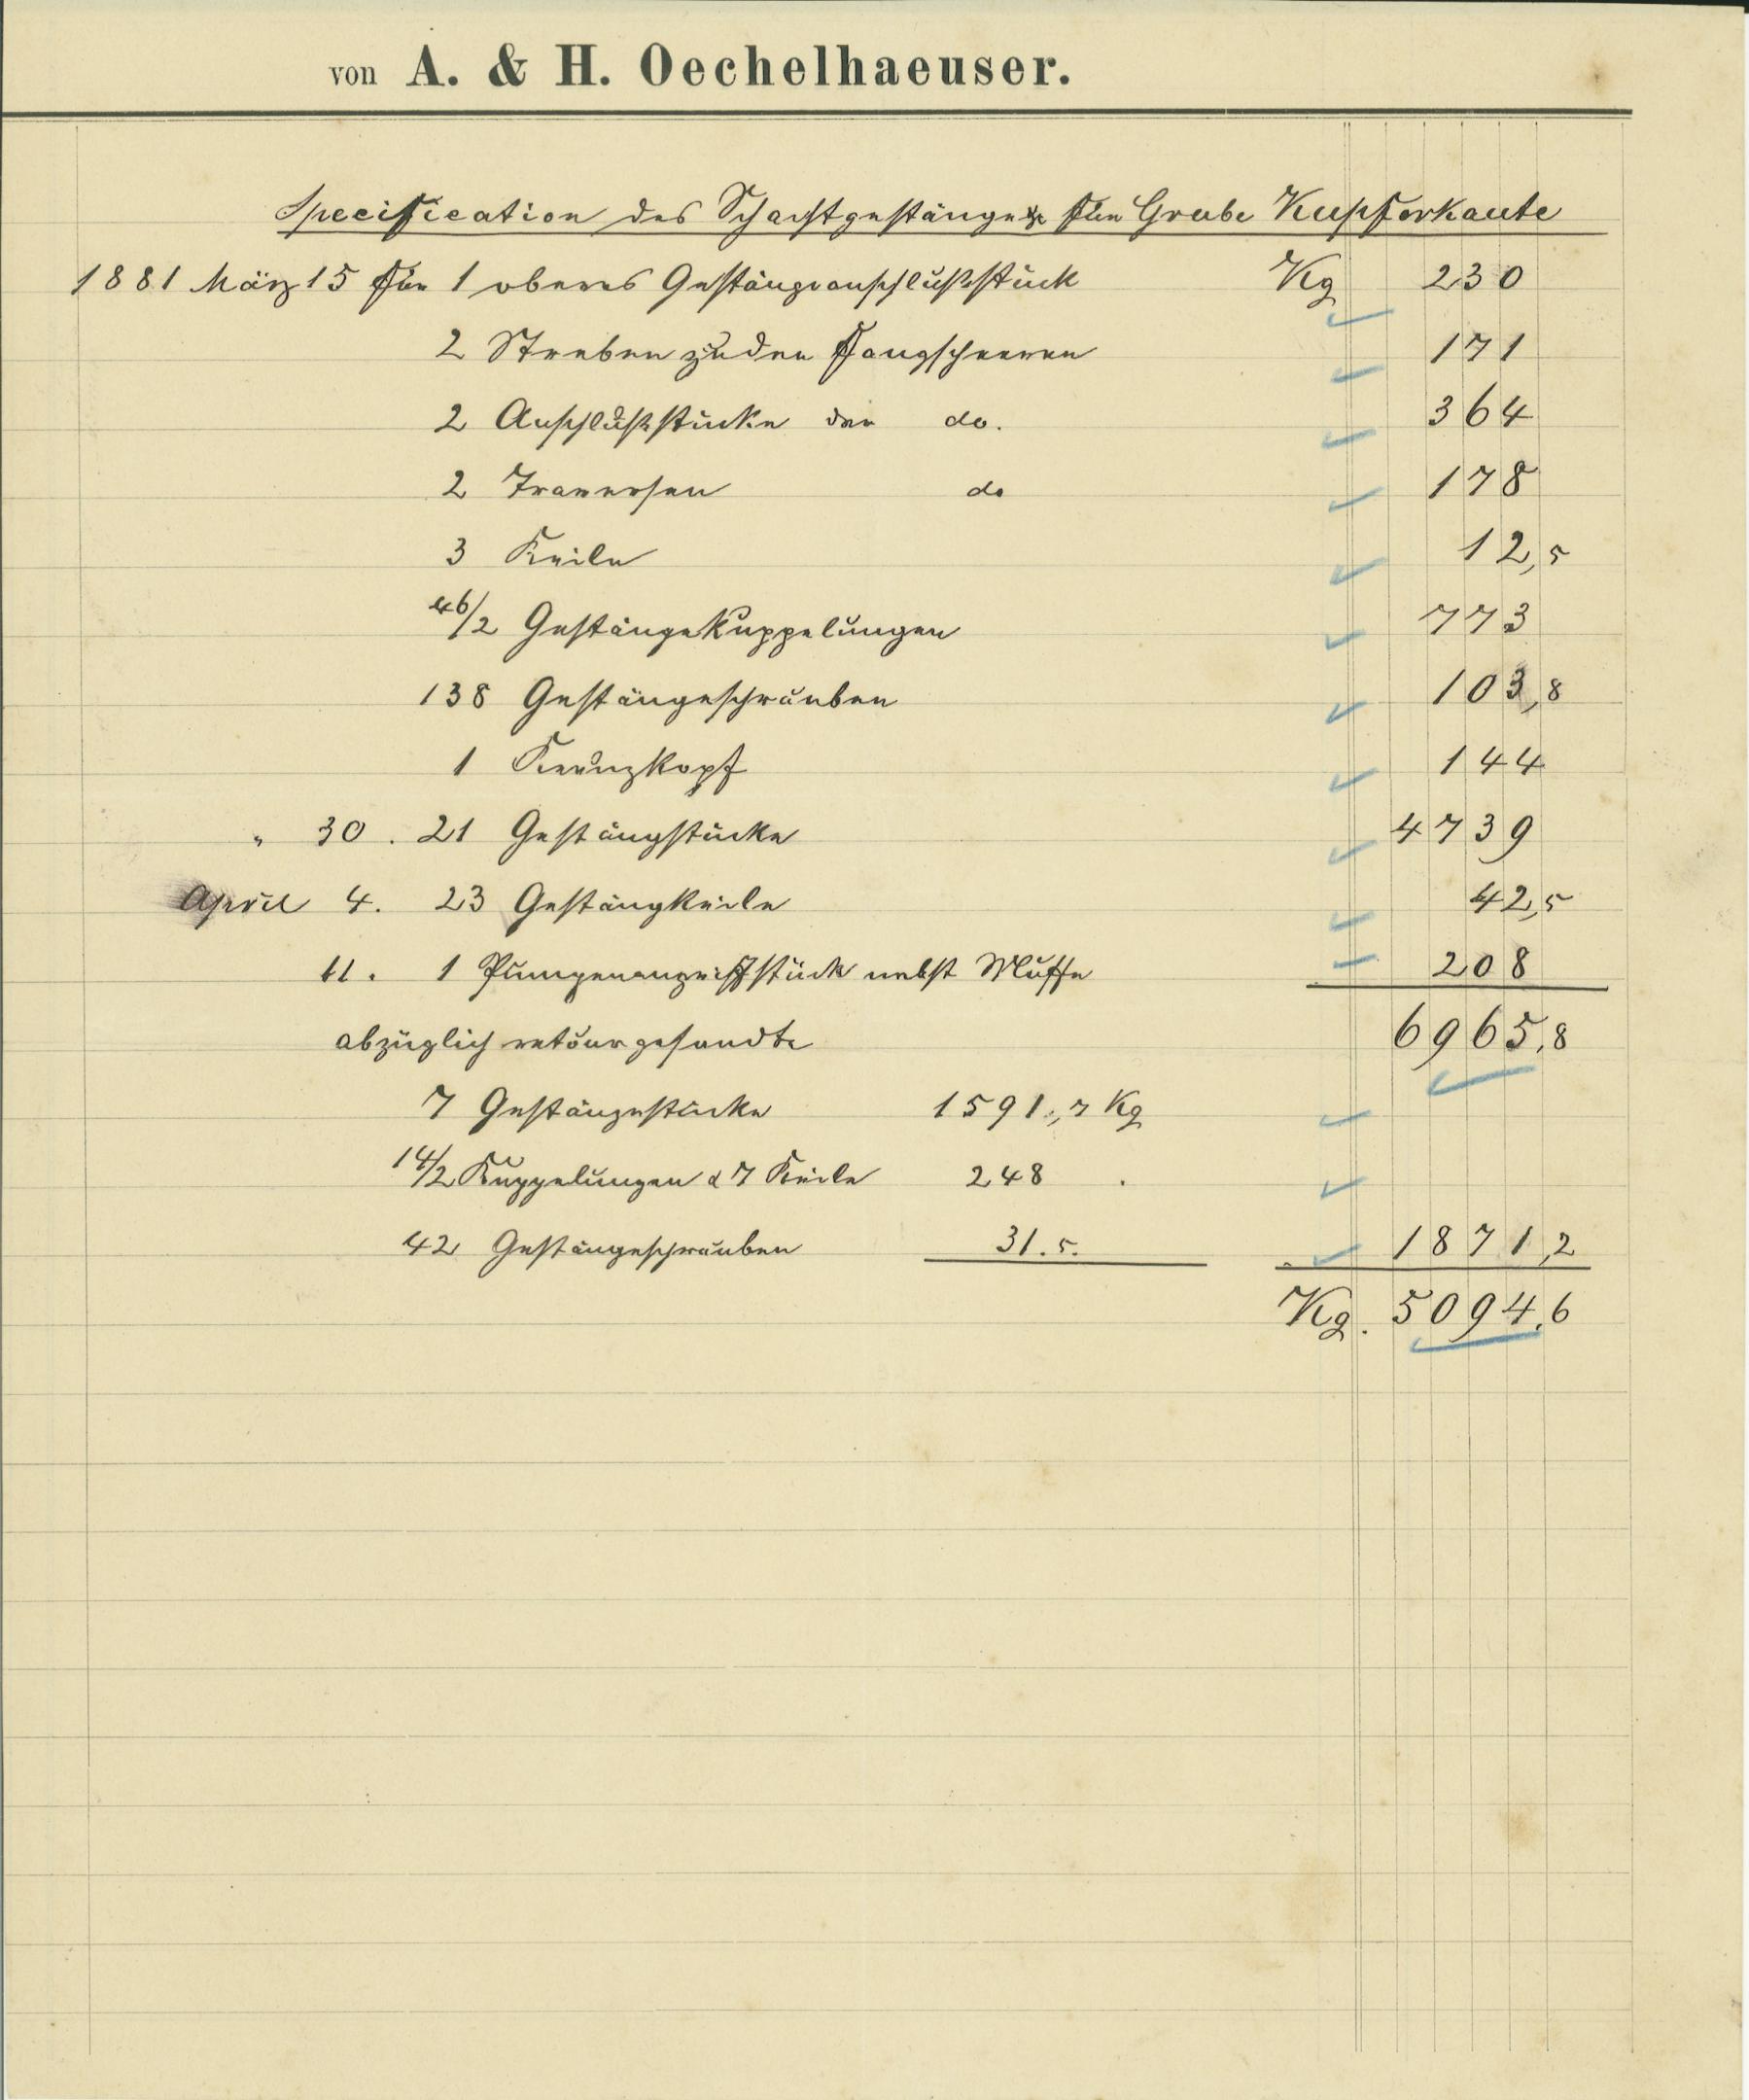 von A. & H. Oechelhaeuser.
Specification des Schachtgestänges für Grube Kupferkaute
1881 März 15 für 1 oberes Gestängeanschlußstück Kg 230
2 Streben zu den Fangscheeren 171
2 Anschlußstücke der do. 364
2 Traversen do 178
3 Keile 12,5
46/2 Gestängekuppelungen 773
138 Gestängeschrauben 103,8
1 Kreuzkopf 144
" 30. 21 Gestängstücke 4739
April 4. 23 Gestängkeile 42,5
11. 1 Pumpenangriffstück nebst Muffe 208
6965,8
abzüglich retour gesandte
7 Gestängestücke 1591,7 Kg
14/2 Kuppelungen & 7 Keile 248 "
42 Gestängeschrauben 31.5. 1871,2
Kg. 5094,6